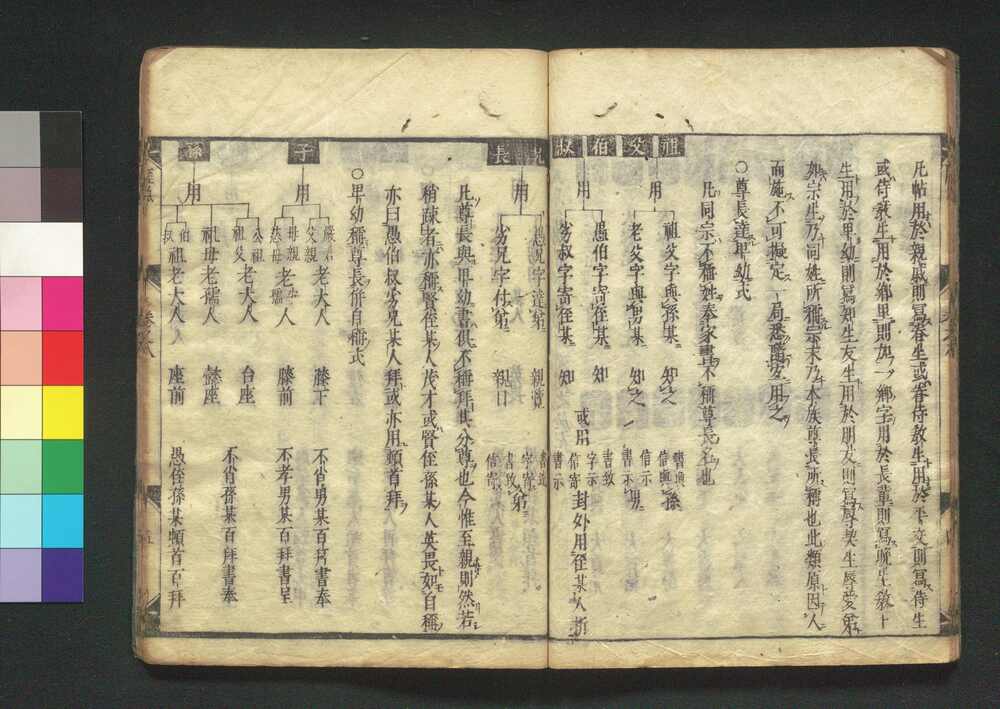 凡帖用於親戚則寫眷生或眷侍教生用於平交則寫侍生
或侍教生用於鄉里則加一鄉字用於長輩則寫晚生教下
生用於卑幼則寫知生友生用於朋友則寫辱契生辱愛弟
如宗生乃同姓所稱宗末乃本族尊長所稱也此類原因人
而施不可擬定一局悉隨變用之
凡同宗不稱姓奉家書不稱尊長名也
○尊長達卑幼式
祖
父
用
祖父字與孫某 知之
老父字與男某 知之
書與
信與 孫
信示
書示 男
伯
叔
用
愚伯字寄侄某 知
劣叔字寄侄某 知
或用
書致
字示
信寄
書示
封外用侄某人拆
兄
長
用
愚兄字達弟 親覽
劣兄字付弟 親目
字寄
書致
信寄
弟
凡尊長與卑幼書俱不稱拜其分尊也今惟至親則然若
稍疎者亦稱賢侄某人茂才或賢侄孫某人英畏如自稱
亦曰愚伯叔劣兄某人拜或亦用頓首拜
○卑幼稱尊長併自稱式
子
用
嚴君
父親 老大人 膝下 不肖男某百拜書奉
母親
慈母 老孺人 膝前 不孝男某百拜書呈
孫
用
公祖
祖父 老大人 台座 不肖孫某百拜書奉
祖母老孺人 懿座
伯
叔 祖老大人 座前 愚侄孫某頓首百拜